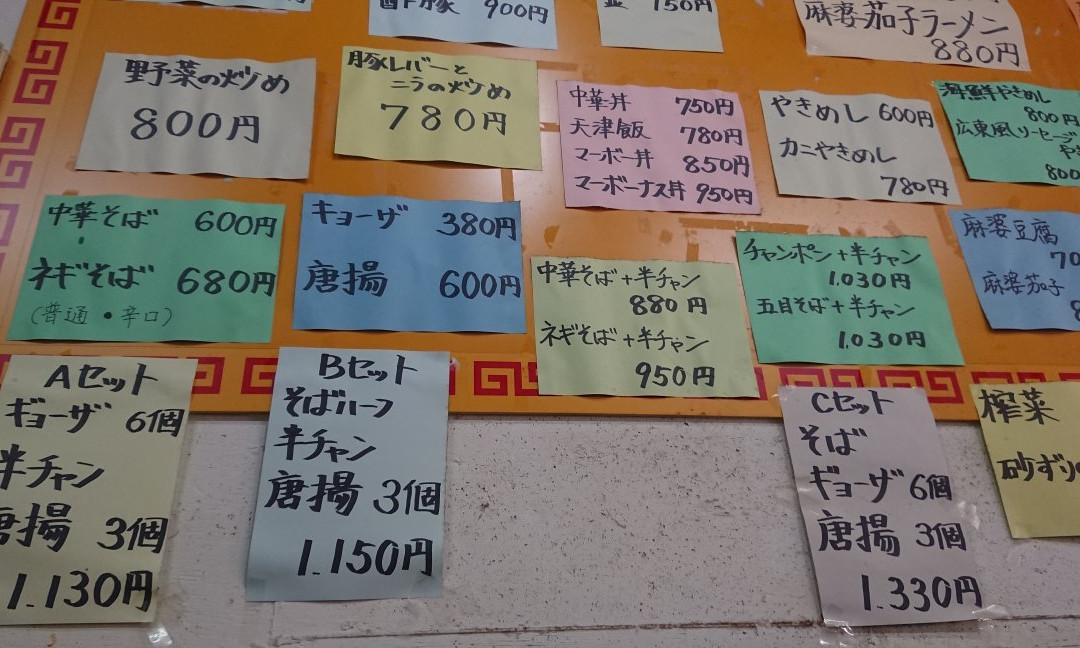 酢豚 900円
150円
麻婆茄子ラーメン
880円
野菜の炒め
800円
豚レバーと
ニラの炒め
780円
中華丼 750円
天津飯 780円
マーボー丼 850円
マーボーナス丼 950円
やきめし 600円
カニやきめし
780円
海鮮やきめし
800円
広東風ソーセージ
や
800
中華そば 600円
ネギそば 680円
(普通・辛口)
ギョーザ 380円
唐揚 600円
中華そば+半チャン
880円
ネギそば+半チャン
950円
チャンポン+半チャン
1.030円
五目そば+半チャン
1.030円
麻婆豆腐
70
麻婆茄子
8
Aセット
ギョーザ 6個
半チャン
唐揚 3個
1.130円
Bセット
そばハーフ
半チャン
唐揚 3個
1.150円
Cセット
そば
ギョーザ 6個
唐揚 3個
1.330円
榨菜
砂ずりの